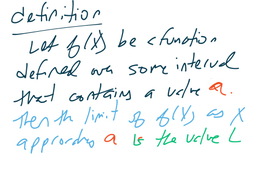 definition
Let f(x) be a function
defined over some interval
that contains a value a.
Then the limit of f(x) as x
approaches a is the value L